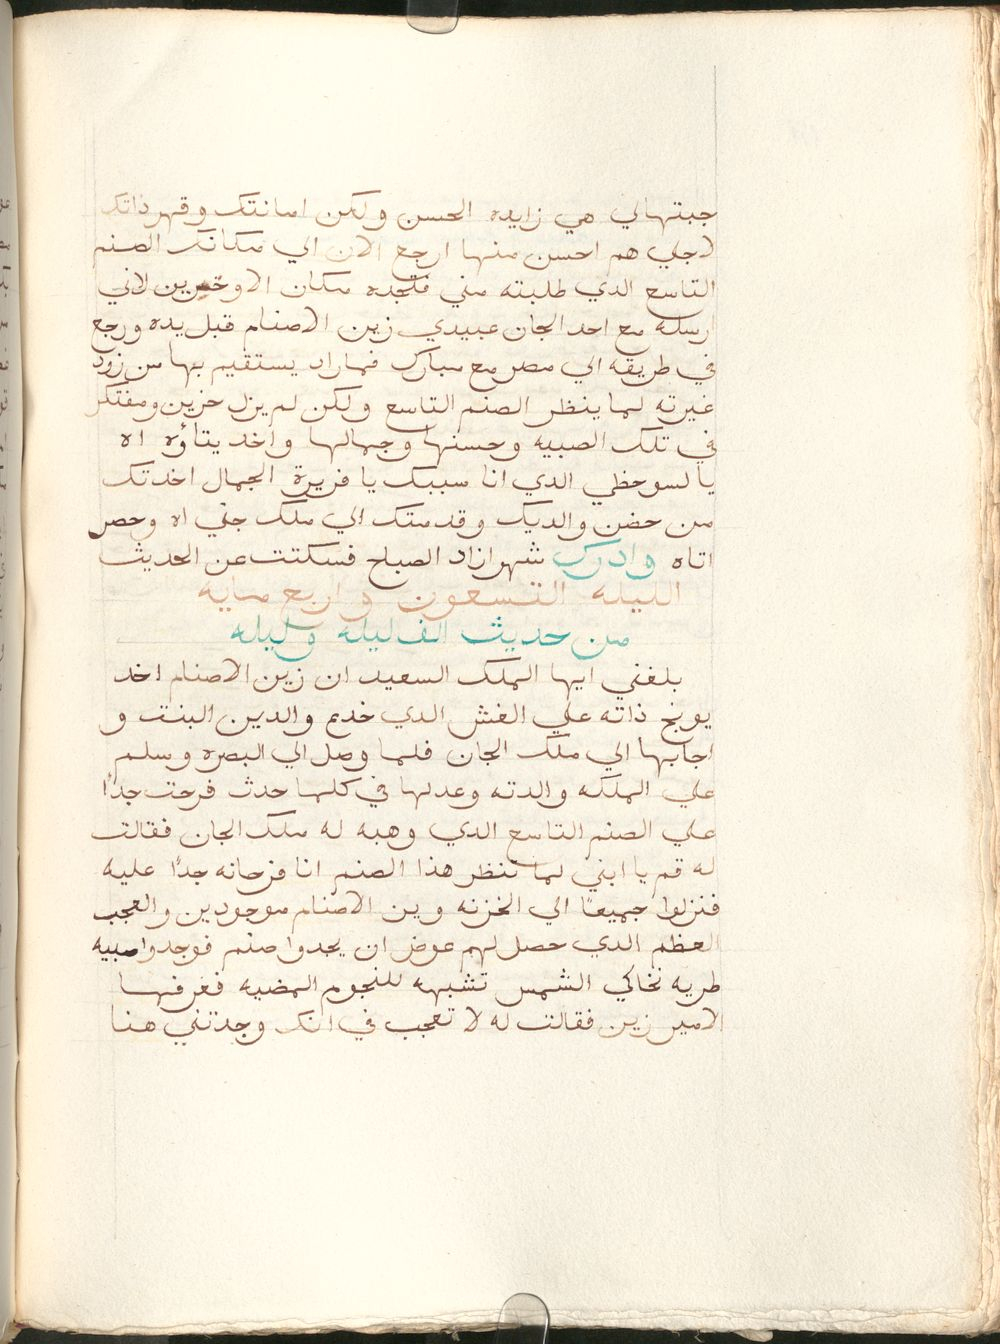 جبتهالي هي زايده الحسن ولكن امانتك وقهر ذاتك
لاجلي هم احسن منها ارجع الان الي مكانك الصنم
التاسع الدي طلبته مني فتجده مكان الاوخرين لاني
ارسله مع احد الجان عبيدي زين الاصنام قبل يده ورجع
في طريقه الي مصر مع مبارك فماراد يستقيم بها من زود
غيرته لما ينظر الصنم التاسع ولكن لم يزل حزين ومفتكر
في تلك الصبيه وحسنها وجمالها واخد يتاؤه اه
يا لسو حظي الدي انا سببك يا فريرة الجمال اخدتك
من حضن والديك وقدمتك الي ملك جني اه وحصر
اتاه وادرك شهرازاد الصباح فسكتت عن الحديث
الليله التسعون واربع مايه
من حديث الف ليله وليله
بلغني ايها الملك السعيد ان زين الاصنام اخد
يوبخ ذاته علي الغش الدي خدع والدين البنت و
اجابها الي ملك الجان فلما وصل الي البصره وسلم
علي الملكه والدته وعدلها في كلما حدث فرحت جدًا
علي الصنم التاسع الدي وهبه له ملك الجان فقالت
له قم يا ابني لما ننظر هذا الصنم انا فرحانه جدًا عليه
فنزلوا جميعًا الي الخزنه وين الاصنام موجودين والعجب
العظم الدي حصل لهم عوض ان يجدوا صنم فوجدوا صبيه
طريه تحاكي الشمس تشبهه للنجوم المضيه فعرفها
الامير زين فقالت له لا تعجب في انك وجدتني هنا